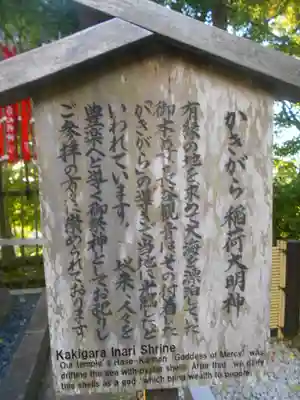 かきがら稲荷大明神
有縁の地を求めて大海を漂流した
御本尊・長谷観音は、その付着した
「かきがら」の導きで当地に光臨したと
いわれています。以来、人々を
豊楽へと導く御神としてお祀りし
ご参拝の方に崇められております
Kakigara Inari Shrine
Our temple's Hase-Kannon (Goddess of Mercy) was
drifting the sea with oyster shells. After that we deify
this shells as a god which bring wealth to people.